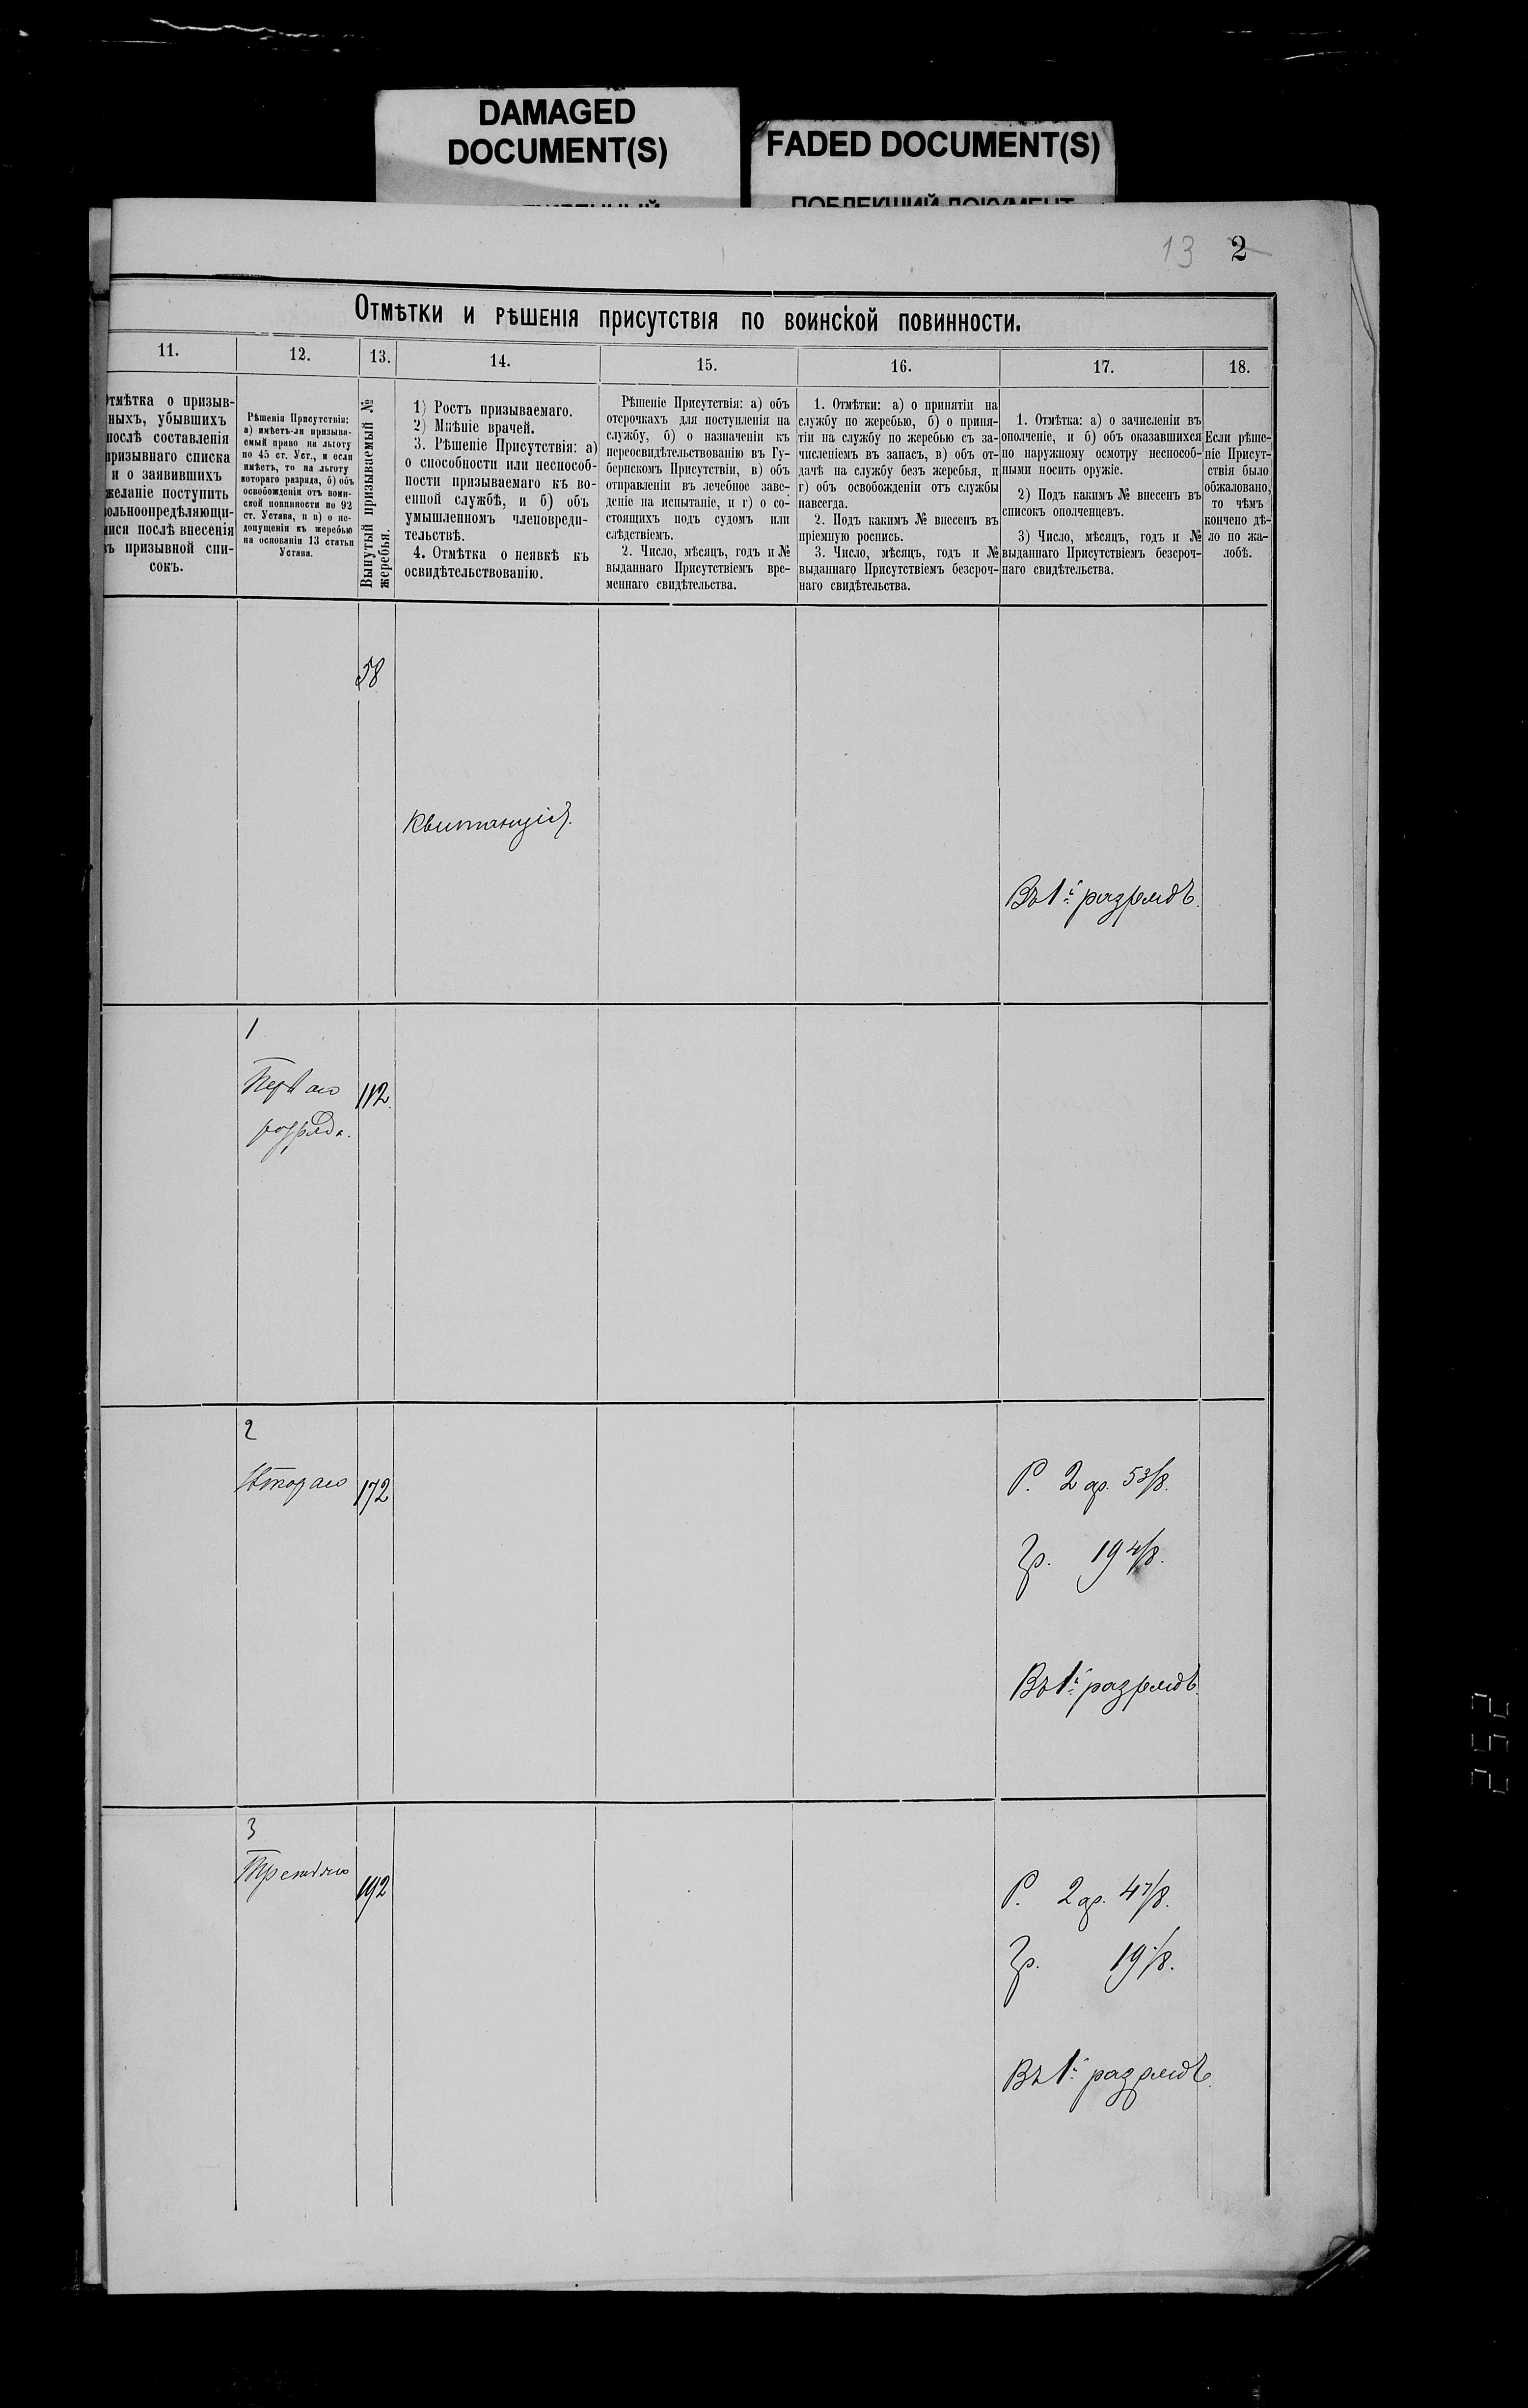 DAMAGED
DOCUMENT(S)
FADED DOCUMENT(S)
ПОБЛЕКШИЙ ДОКУМЕНТ
13 2
Отмѣтки и рѣшенія присутствія по воинской повинности.
11.
12.
13.
14.
15.
16.
17.
18.
Отмѣтка о призыв-
ныхъ, убывшихъ
послѣ составленія
призывнаго списка
и о заявившихъ
желаніе поступить
вольноопредѣляющи-
мися послѣ внесенія
въ призывной спи-
сокъ.
Рѣшенія Присутствія:
а) имѣетъ-ли призыва-
емый право на льготу
по 45 ст. Уст., и если
имѣетъ, то на льготу
котораго разряда, б) объ
освобожденіи отъ воин-
ской повинности по 92
ст. Устава, и в) о не-
допущеніи къ жеребью
на основаніи 13 статьи
Устава.
Вынутый призываемый №
жеребья.
1) Ростъ призываемаго.
2) Мнѣніе врачей.
3. Рѣшеніе Присутствія: а)
о способности или неспособ-
ности призываемаго къ во-
енной службѣ, и б) объ
умышленномъ членовреди-
тельствѣ.
4. Отмѣтка о неявкѣ къ
освидѣтельствованію.
Рѣшеніе Присутствія: а) объ
отсрочкахъ для поступленія на
службу, б) о назначеніи къ
переосвидѣтельствованію въ Гу-
бернскомъ Присутствіи, в) объ
отправленіи въ лечебное заве-
деніе на испытаніе, и г) о со-
стоящихъ подъ судомъ или
слѣдствіемъ.
2. Число, мѣсяцъ, годъ и №
выданнаго Присутствіемъ вре-
меннаго свидѣтельства.
1. Отмѣтки: а) о принятіи на
службу по жеребью, б) о приня-
тіи на службу по жеребью съ за-
численіемъ въ запасъ, в) объ от-
дачѣ на службу безъ жеребья, и
г) объ освобожденіи отъ службы
навсегда.
2. Подъ какимъ № внесенъ въ
пріемную роспись.
3. Число, мѣсяцъ, годъ и №
выданнаго Присутствіемъ безсроч-
наго свидѣтельства.
1. Отмѣтка: а) о зачисленіи въ
ополченіе, и б) объ оказавшихся
по наружному осмотру неспособ-
ными носить оружіе.
2) Подъ какимъ № внесенъ въ
списокъ ополченцевъ.
3) Число, мѣсяцъ, годъ и №
выданнаго Присутствіемъ безсроч-
наго свидѣтельства.
Если рѣше-
ніе Присут-
ствія было
обжаловано,
то чѣмъ
кончено дѣ-
ло по жа-
лобѣ.
58
Квитанція.
Въ 1й разрядъ.
1
Перваго
разряда.
112.
2
Втораго
172
Р. 2 ар. 5 3/8.
Гр. 19 4/8.
Въ 1й разрядъ.
3
Третьяго
192
Р. 2 ар. 4 7/8.
Гр. 19 1/8.
Въ 1й разрядъ.
252